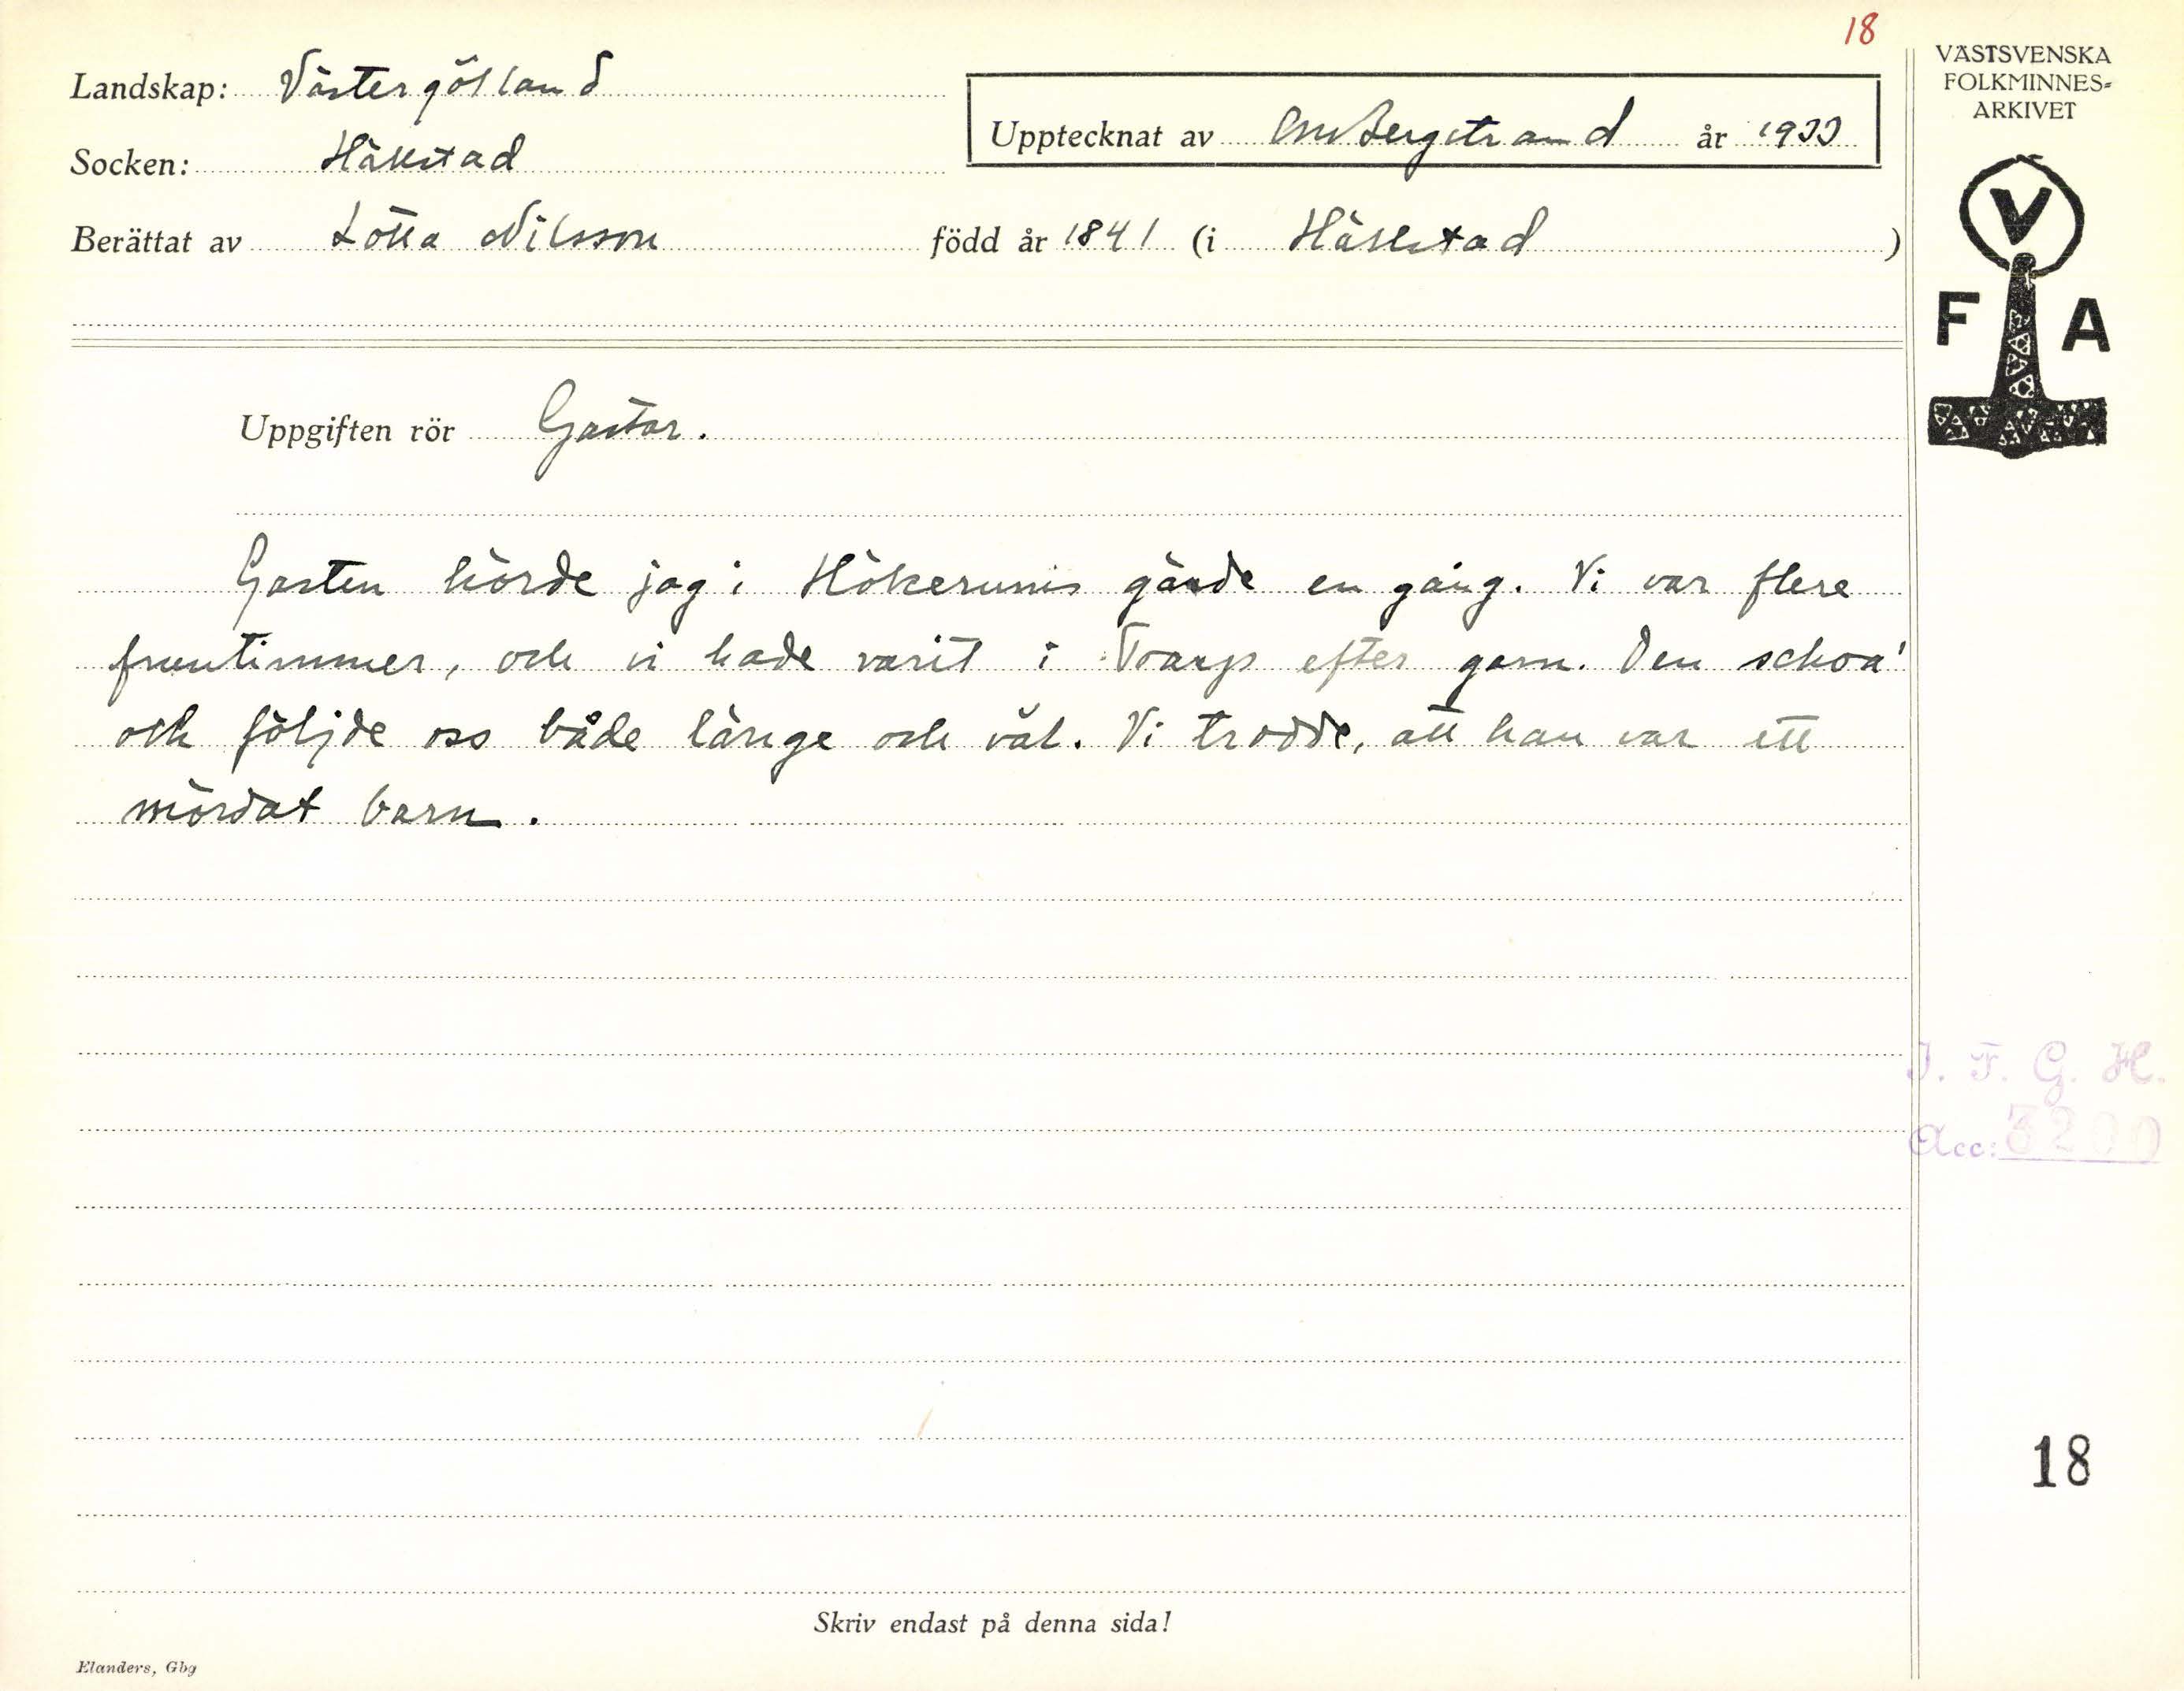 18
Landskap: Västergötland
Socken: Håkstad
Upptecknat av CM Bergstrand år 1933
Berättat av Lotta Nilsson född år 1841 (i Häkstad)
VÄSTSVENSKA
FOLKMINNES-
ARKIVET
V
F A
Uppgiften rör Gastar.
Gasten hörde jag i Hökerums gärde en gång. Vi var flere
fruntimmer, och vi hade varit i Toarp efter garn. Den schoa'
och följde oss både länge och väl. Vi trodde, att han var ett
mördat barn.
I. F. G. H.
Acc: 3200
18
Skriv endast på denna sida!
Elanders, Gbg